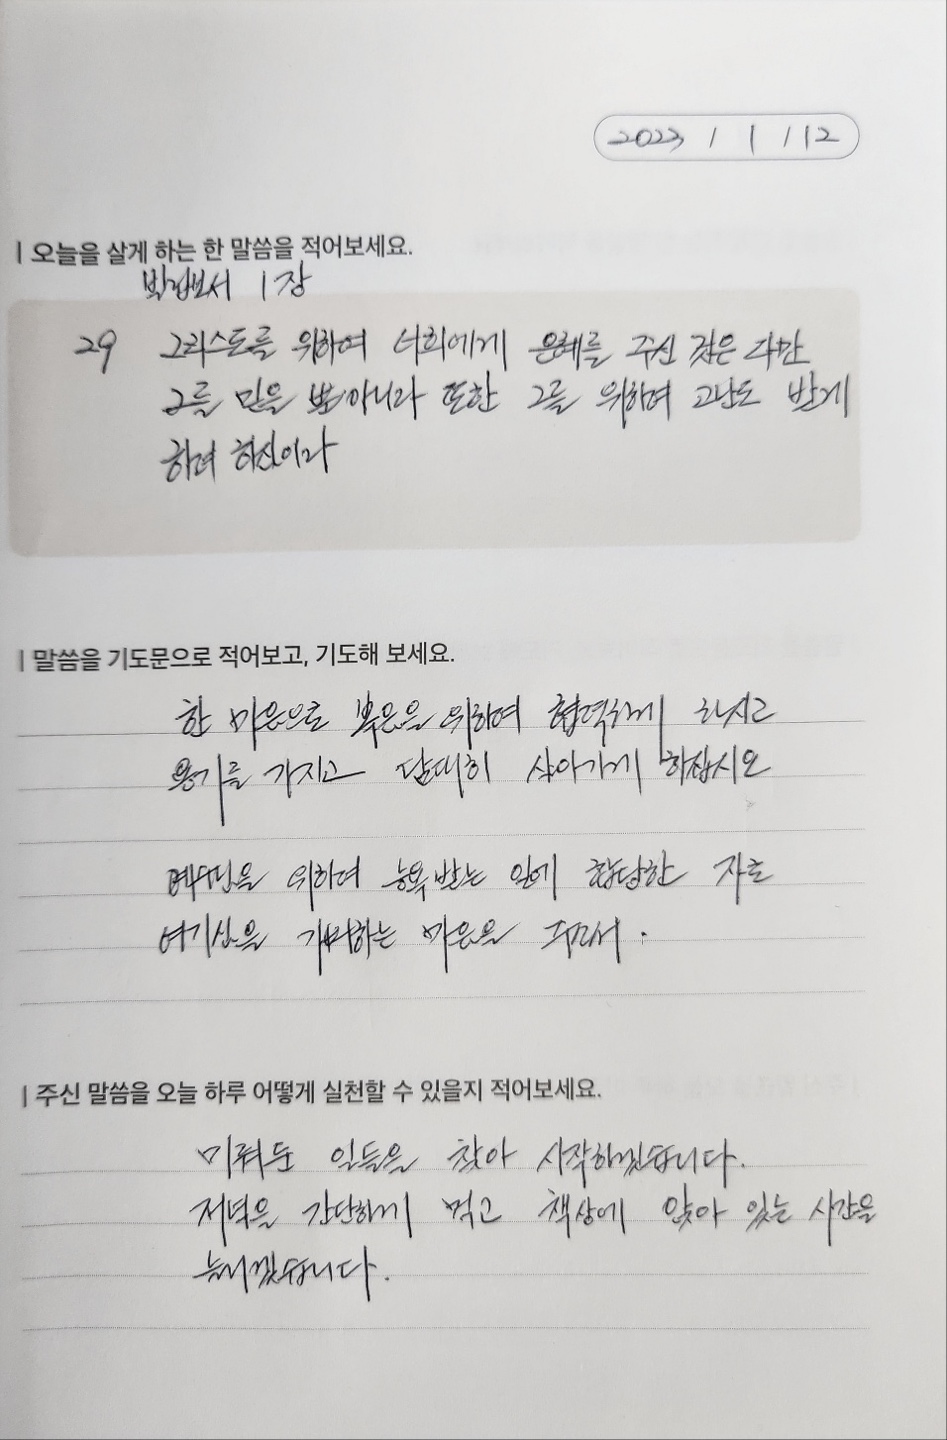 2023 / 1 / 12
| 오늘을 살게 하는 한 말씀을 적어보세요.
빌립보서 1장
29 그리스도를 위하여 너희에게 은혜를 주신 것은 다만
그를 믿을 뿐 아니라 또한 그를 위하여 고난도 받게
하려 하심이라
| 말씀을 기도문으로 적어보고, 기도해 보세요.
한 마음으로 복음을 위하여 협력하게 하시고
용기를 가지고 담대히 살아가게 하십시오
예수님을 위하여 능욕 받는 일에 합당한 자로
여기심을 기뻐하는 마음을 주소서.
| 주신 말씀을 오늘 하루 어떻게 실천할 수 있을지 적어보세요.
미뤄둔 일들을 찾아 시작하겠습니다.
저녁을 간단하게 먹고 책상에 앉아 있는 시간을
늘리겠습니다.